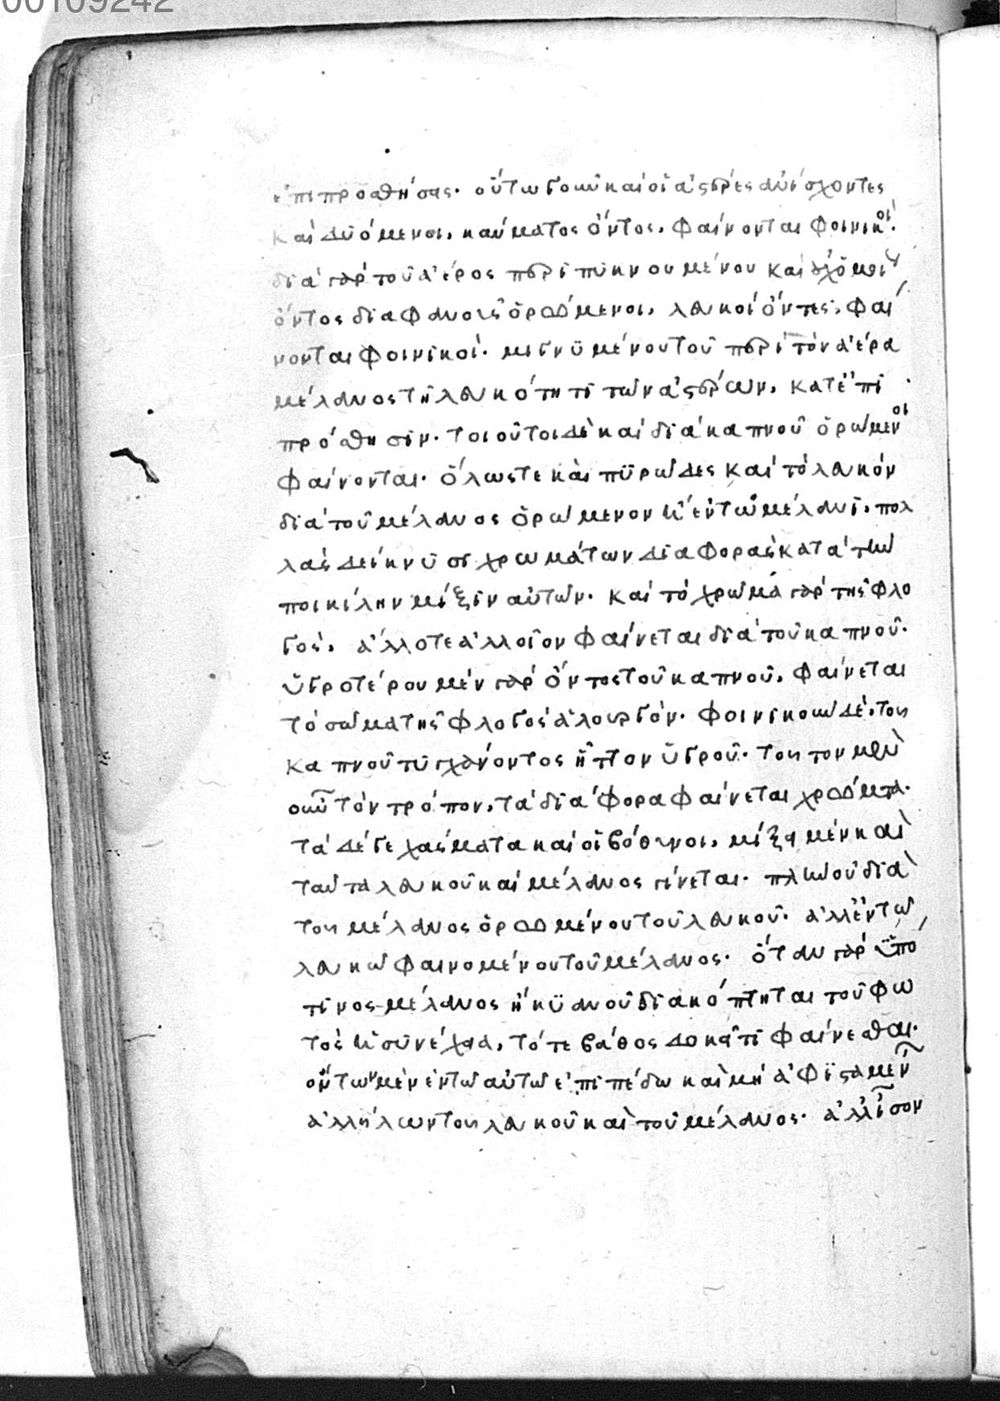 00109242
ἐπιπροσθήσας· οὕτω γοῦν καὶ οἱ ἀστέρες ἀνίσχοντες
καὶ δυόμενοι, καύματος ὄντος, φαίνονται φοινικοῖ·
διὰ γὰρ τοῦ ἀέρος περιπυκνουμένου καὶ
ὄντος διαφανοῦς ὁρώμενοι, λευκοὶ ὄντες, φαί
νονται φοινικοί· μιγνυμένου τοῦ περὶ τὸν ἀέρα
μέλανος τῇ λευκότητι τῶν ἀστέρων, κατ' ἐπι
πρόσθησιν· τοιοῦτοι δὲ καὶ διὰ καπνοῦ ὁρώμενοι
φαίνονται· ὅλως τε καὶ πυρώδες καὶ τὸ λευκὸν
διὰ τοῦ μέλανος ὁρώμενον ἢ ἐν τῶ μέλανι, πολ
λὰς δείκνυσι χρωμάτων διαφορὰς κατὰ τὴν
ποικίλην μίξιν αὐτῶν· καὶ τὸ χρῶμα γὰρ τῆς φλο
γὸς, ἄλλοτε ἀλλοῖον φαίνεται διὰ τοῦ καπνοῦ·
ὑγροτέρου μὲν γὰρ ὄντος τοῦ καπνοῦ, φαίνεται
τὸ σῶμα τῆς φλογὸς ἁλουργόν· φοινικοῦν δὲ, τοῦ
καπνοῦ τυγχάνοντος ἧττον ὑγροῦ· τοῦτον μὲν
οὖν τὸν τρόπον, τὰ διάφορα φαίνεται χρώματα·
τὰ δέ γε χάσματα καὶ οἱ βόθυνοι, μίξει μὲν καὶ
ταῦτα λευκοῦ καὶ μέλανος γίνεται· πλὴν οὐ διὰ
τοῦ μέλανος ὁρωμένου τοῦ λευκοῦ· ἀλλ' ἐν τῶ
λευκῶ φαινομένου τοῦ μέλανος· ὅταν γὰρ ὑπό
τινος μέλανος ἢ κυανοῦ διακόπτηται τοῦ φω
τὸς ἡ συνέχεια, τότε βάθος δοκεῖ τι φαίνεσθαι·
ὄντων μὲν ἐν τῶ αὐτῶ ἐπιπέδω καὶ μὴ ἀφισταμένων
ἀλλήλων τοῦ λευκοῦ καὶ τοῦ μέλανος· ἀλλ' ἴσον